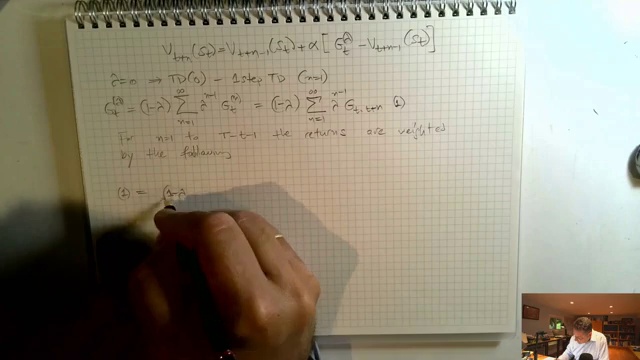 V_{t+n}(S_t) = V_{t+n-1}(S_t) + α [ G_t^λ - V_{t+n-1}(S_t) ]
λ=0 ⇒ TD(0) - 1 step TD (n=1)
G_t^{(λ)} = (1-λ) ∑_{n=1}^{∞} λ^{n-1} G_t^{(n)} = (1-λ) ∑_{n=1}^{∞} λ^{n-1} G_{t,t+n} (1)
For n=1 to T-t-1 the returns are weighted
by the following
(1) = (1-λ